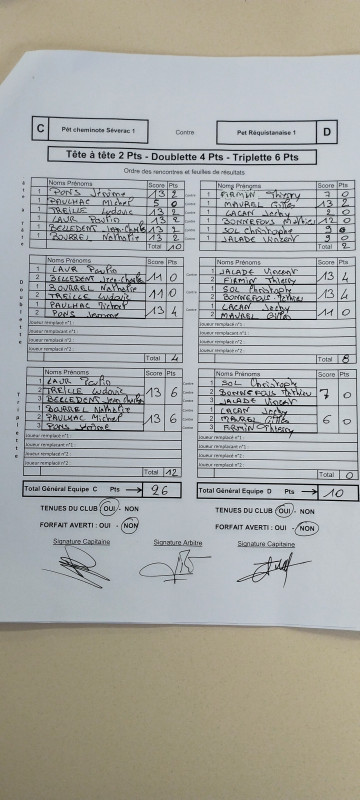 C Pét cheminote Séverac 1 Contre Pet Réquistanaise 1 D
Tête à tête 2 Pts - Doublette 4 Pts - Triplette 6 Pts
Ordre des rencontres et feuilles de résultats
Noms Prénoms Score Pts Noms Prénoms Score Pts
1 PONS Jérôme 13 2 Contre 1 FIRMIN Thierry 7 0
1 PAULHAC Michel 5 0 1 MAUREL Gilles 13 2
1 TREILLE Ludovic 13 2 1 LACAN Jacky 2 0
1 LAUR Paulin 13 2 1 BONNEFOUS Mathieu 12 0
1 BELLEDENT Jean-Charles 13 2 1 SOL Christophe 9 0
1 BOURREL Nathalie 13 2 1 JALADE Vincent 9 0
Total 10 2
Doublette
Noms Prénoms Score Pts Noms Prénoms Score Pts
1 LAUR Paulin 11 0 JALADE Vincent 13 4
2 BELLEDENT Jean-Charles 2 FIRMIN Thierry
1 BOURREL Nathalie 11 0 1 SOL Christophe 13 4
2 TREILLE Ludovic 2 BONNEFOUS Mathieu
1 PAULHAC Michel 13 4 1 LACAN Jacky 11 0
2 PONS Jerome 2 MAUREL Gilles
Joueur remplacé n°1 : Joueur remplacé n°1 :
Joueur remplacé n°2 : Joueur remplacé n°2 :
Total 4 Total 8
Triplette
Noms Prénoms Score Pts Noms Prénoms Score Pts
1 LAUR Paulin 13 6 Contre 1 SOL Christophe 7 0
2 TREILLE Ludovic 2 BONNEFOUS Mathieu
3 BELLEDENT Jean-Charles 3 JALADE Vincent
1 BOURREL Nathalie 13 6 1 LACAN Jacky 6 0
2 PAULHAC Michel 2 MAUREL Gilles
3 PONS Jérôme 3 FIRMIN Thierry
Joueur remplacé n°1 : Joueur remplacé n°1 :
Joueur remplacé n°2 : Joueur remplacé n°2 :
Total 12 Total 0
Total Général Equipe C Pts 26 Total Général Equipe D Pts 10
TENUES DU CLUB : OUI - NON TENUES DU CLUB : OUI - NON
FORFAIT AVERTI : OUI - NON FORFAIT AVERTI : OUI - NON
Signature Capitaine Signature Arbitre Signature Capitaine